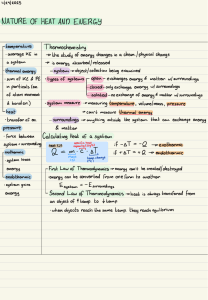 NATURE OF HEAT AND ENERGY
temperature
- average KE in
a system
thermal energy
- sum of KE & PE
in particles (on
of atom's movement
& location)
heat
- transfer of an
pressure
- force between
system & surrounding
exothermic
- system loses
energy
endothermic
- system gains
energy
Thermochemistry
→ the study of energy changes in a chem/physical change
→ energy absorbed/released
- system → object/collection being examined
types of systems - open → exchange energy & matter w/ surroundings
- closed → only exchange energy w/ surroundings
- isolated → no exchange of energy & matter w/ surroundings
- system measure → measuring temperature, volume/mass, pressure
→ can't measure thermal energy
- surroundings → anything outside the system that can exchange energy
& matter
Calculating Heat of a system:
Q = m · c · ΔT
if - ΔT = - Q → exothermic
if + ΔT = + Q → endothermic
- First Law of Thermodynamics → energy can't be created/destroyed
energy can be converted from one form to another
E system = - E surroundings
- Second Law of Thermodynamics → heat is always transferred from
an object of ↑ temp to ↓ temp
- when objects reach the same temp they reach equilibrium